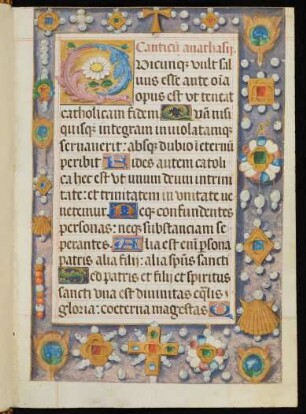 Canticū anathasij.
Quicunq; vult sal
uus esse ante oīa
opus est ut teneat
catholicam fidem Quā nisi
quisq; integram inuiolatamq;
seruauerit: absq; dubio ī eternū
peribit Fides autem catoli
ca hec est ut unum deum in trini
tate: et trinitatem in unitate ue
neremur. Neq; confundentes
personas: neq; substanciam se
perantes. Alia est enī psona
patris alia filii: alia spūs sancti
Sed patris et filii et spiritus
sancti una est diuinitas eqlis:
gloria: coeterna magestas Q